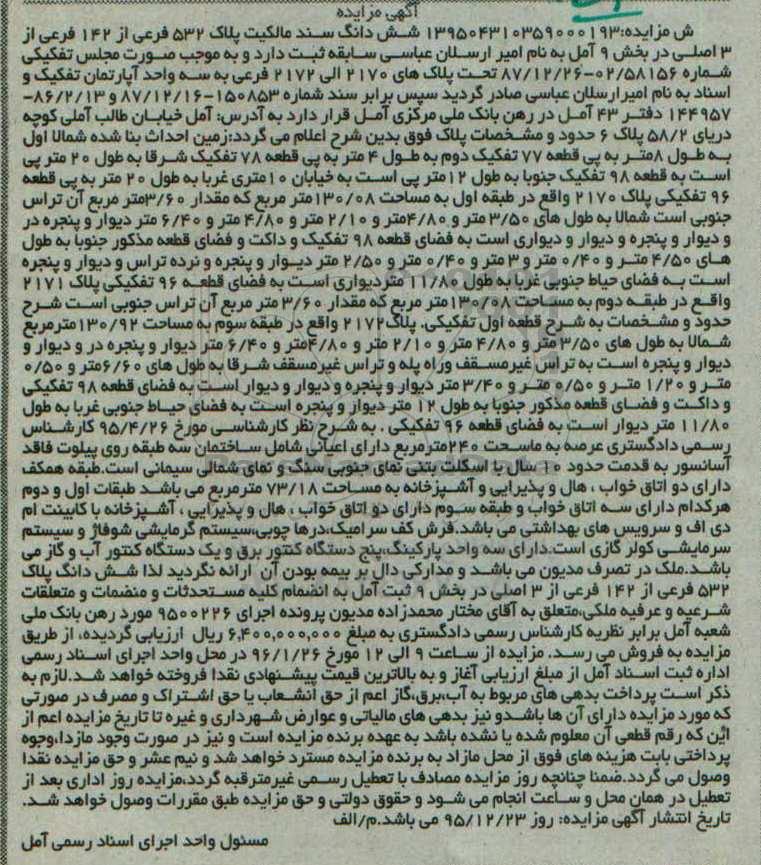 آگهی مزایده
ش مزایده:۱۳۹۵۰۴۳۱۰۳۵۹۰۰۰۱۹۳ شش دانگ سند مالکیت پلاک ۵۳۲ فرعی از ۱۴۲ فرعی از
۳ اصلی در بخش ۹ آمل به نام امیر ارسلان عباسی سابقه ثبت دارد و به موجب صورت مجلس تفکیکی
شماره ۰۲/۵۸۱۵۶-۸۷/۱۲/۲۶ تحت پلاک های ۲۱۷۰ الی ۲۱۷۲ فرعی به سه واحد آپارتمان تفکیک و
اسناد به نام امیرارسلان عباسی صادر گردید سپس برابر سند شماره ۱۵۰۸۵۳-۸۷/۱۲/۱۶ و ۸۶/۲/۱۳-
۱۴۴۹۵۷ دفتر ۴۳ آمل در رهن بانک ملی مرکزی آمل قرار دارد به آدرس: آمل خیابان طالب آملی کوچه
دریای ۵۸/۲ پلاک ۶ حدود و مشخصات پلاک فوق بدین شرح اعلام می گردد:زمین احداث بنا شده شمالا اول
به طول ۸متر به پی قطعه ۷۷ تفکیک دوم به طول ۴ متر به پی قطعه ۷۸ تفکیک شرقا به طول ۲۰ متر پی
است به قطعه ۹۸ تفکیک جنوبا به طول ۱۲متر پی است به خیابان ۱۰متری غربا به طول ۲۰ متر به پی قطعه
۹۶ تفکیکی پلاک ۲۱۷۰ واقع در طبقه اول به مساحت ۱۳۰/۰۸متر مربع که مقدار ۳/۶۰متر مربع آن تراس
جنوبی است شمالا به طول های ۳/۵۰ متر و ۴/۸۰متر و ۲/۱۰ متر و ۴/۸۰ متر و ۶/۴۰ متر دیوار و پنجره در
و دیوار و پنجره و دیوار و دیواری است به فضای قطعه ۹۸ تفکیک و داکت و فضای قطعه مذکور جنوبا به طول
های ۴/۵۰ متر و ۰/۴۰ متر و ۳ متر و ۰/۴۰ متر و ۲/۵۰ متر دیوار و پنجره و نرده تراس و دیوار و پنجره
است به فضای حیاط جنوبی غربا به طول ۱۱/۸۰ متردیواری است به فضای قطعه ۹۶ تفکیکی پلاک ۲۱۷۱
واقع در طبقه دوم به مساحت ۱۳۰/۰۸متر مربع که مقدار ۳/۶۰ متر مربع آن تراس جنوبی است شرح
حدود و مشخصات به شرح قطعه اول تفکیکی. پلاک۲۱۷۲ واقع در طبقه سوم به مساحت ۱۳۰/۹۲مترمربع
شمالا به طول های ۳/۵۰متر و ۴/۸۰ متر و ۲/۱۰ متر و ۴/۸۰متر و ۶/۴۰ متر دیوار و پنجره در و دیوار و
دیوار و پنجره است به تراس غیرمسقف وراه پله و تراس غیرمسقف شرقا به طول های ۶/۶۰متر و ۰/۵۰
متر و ۱/۲۰ متر و ۰/۵۰ متر و ۳/۴۰ متر دیوار و پنجره و دیوار و دیوار است به فضای قطعه ۹۸ تفکیکی
و داکت و فضای قطعه مذکور جنوبا به طول ۱۲ متر دیوار و پنجره است به فضای حیاط جنوبی غربا به طول
۱۱/۸۰ متر دیوار است به فضای قطعه ۹۶ تفکیکی . به شرح نظر کارشناسی مورخ ۹۵/۴/۲۶ کارشناس
رسمی دادگستری عرصه به ماسحت ۲۴۰مترمربع دارای اعیانی شامل ساختمان سه طبقه روی پیلوت فاقد
آسانسور به قدمت حدود ۱۰ سال با اسکلت بتنی نمای جنوبی سنگ و نمای شمالی سیمانی است.طبقه همکف
دارای دو اتاق خواب ، هال و پذیرایی و آشپزخانه به مساحت ۷۳/۱۸ مترمربع می باشد طبقات اول و دوم
هرکدام دارای سه اتاق خواب و طبقه سوم دارای دو اتاق خواب ، هال و پذیرایی ، آشپزخانه با کابینت ام
دی اف و سرویس های بهداشتی می باشد.فرش کف سرامیک،درها چوبی،سیستم گرمایشی شوفاژ و سیستم
سرمایشی کولر گازی است.دارای سه واحد پارکینگ،پنج دستگاه کنتور برق و یک دستگاه کنتور آب و گاز می
باشد.ملک در تصرف مدیون می باشد و مدارکی دال بر بیمه بودن آن ارائه نگردید لذا شش دانگ پلاک
۵۳۲ فرعی از ۱۴۲ فرعی از ۳ اصلی در بخش ۹ ثبت آمل به انضمام کلیه مستحدثات و منضمات و متعلقات
شرعیه و عرفیه ملکی،متعلق به آقای مختار محمدزاده مدیون پرونده اجرای ۹۵۰۰۲۲۶ مورد رهن بانک ملی
شعبه آمل برابر نظریه کارشناس رسمی دادگستری به مبلغ ۶,۴۰۰,۰۰۰,۰۰۰ ریال ارزیابی گردیده، از طریق
مزایده به فروش می رسد. مزایده از ساعت ۹ الی ۱۲ مورخ ۹۶/۱/۲۶ در محل واحد اجرای اسناد رسمی
اداره ثبت اسناد آمل از مبلغ ارزیابی آغاز و به بالاترین قیمت پیشنهادی نقدا فروخته خواهد شد.لازم به
ذکر است پرداخت بدهی های مربوط به آب،برق،گاز اعم از حق انشعاب یا حق اشتراک و مصرف در صورتی
که مورد مزایده دارای آن ها باشدو نیز بدهی های مالیاتی و عوارض شهرداری و غیره تا تاریخ مزایده اعم از
این که رقم قطعی آن معلوم شده یا نشده باشد به عهده برنده مزایده است و نیز در صورت وجود مازدا،وجوه
پرداختی بابت هزینه های فوق از محل مازاد به برنده مزایده مسترد خواهد شد و نیم عشر و حق مزایده نقدا
وصول می گردد.ضمنا چنانچه روز مزایده مصادف با تعطیل رسمی غیرمترقبه گردد،مزایده روز اداری بعد از
تعطیل در همان محل و ساعت انجام می شود و حقوق دولتی و حق مزایده طبق مقررات وصول خواهد شد.
تاریخ انتشار آگهی مزایده: روز ۹۵/۱۲/۲۳ می باشد.م/الف
مسئول واحد اجرای اسناد رسمی آمل